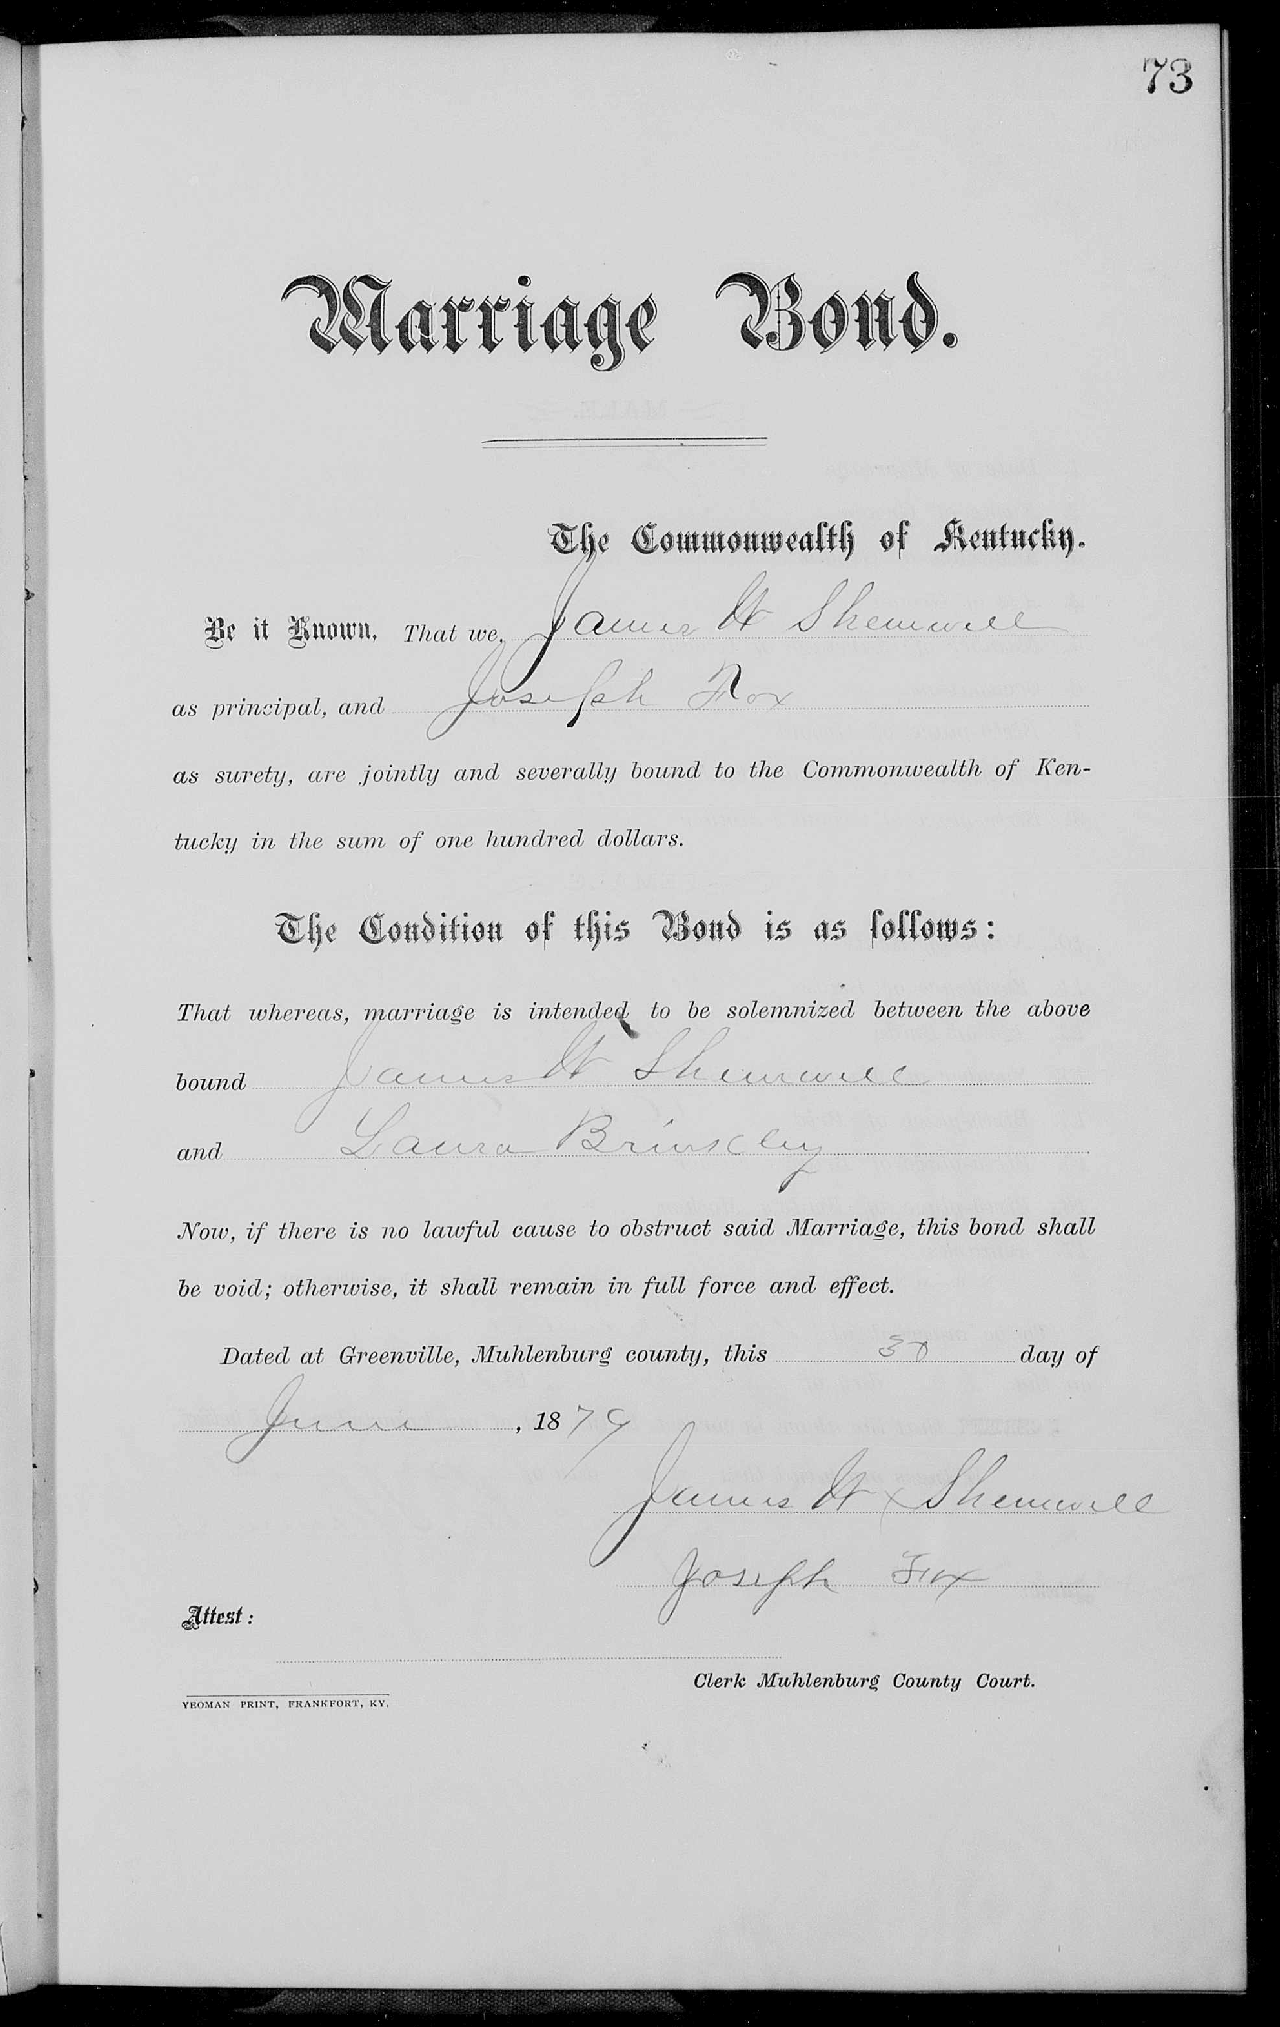 73
Marriage Bond.
The Commonwealth of Kentucky.
Be it Known, That we, James W Shemwell
as principal, and Joseph Fox
as surety, are jointly and severally bound to the Commonwealth of Ken-
tucky in the sum of one hundred dollars.
The Condition of this Bond is as follows:
That whereas, marriage is intended to be solemnized between the above
bound James W Shemwell
and Laura Brinkley
Now, if there is no lawful cause to obstruct said Marriage, this bond shall
be void; otherwise, it shall remain in full force and effect.
Dated at Greenville, Muhlenburg county, this 30 day of
June, 1879
James W x Shemwell
Joseph Fox
Attest:
Clerk Muhlenburg County Court.
YEOMAN PRINT, FRANKFORT, KY.